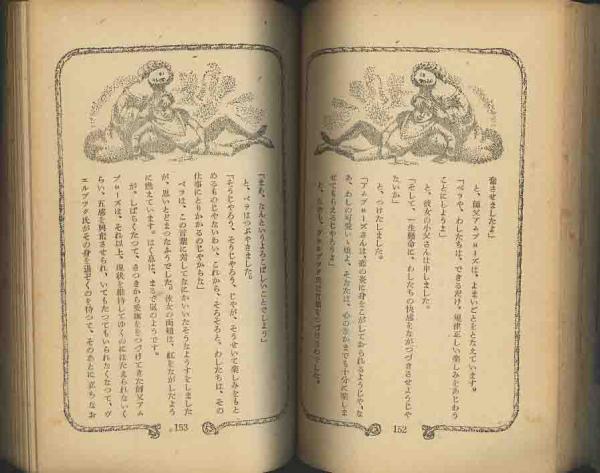 奮させましたよ」
と、師父アムブローズは、よまいごとをとなえています。
「ベラや、わしたちは、できるだけ、規律正しい楽しみをあじわう
ことにしよう」
と、彼女の小父さんは申しました。
「そして、一生懸命に、わしたちの快感をながつづきさせようじゃ
ないか」
と、つけたしました。
「アムブローズさんは、恋の炎に身をこがしておられるようじゃ、な
あ、わしの可愛いい姪よ、そなたは、心のなかまでも十分に楽しま
せてもらえるじゃろうよ」
152
「まあ、なんというよろこばしいことでしょう」
と、ベラはつぶやきました。
「そうじゃろう、そうじゃろう、じゃが、そうせいて楽しみをもと
めるものじゃないわい、これから、そろそろと、わしたちは、その
仕事にとりかかるのじゃからな」
ベラは、この言葉に対してなにかいいたそうなようすをしました
が、思いとどまったふうでした。彼女の両頬は、紅をながしたよう
に燃えています。はく息は、まるで嵐のようです。
が、しばらくたつて、さつきから愛撫をつづけてきた師父アム
ブローズは、それ以上、現状を維持してゆくのにはたえられないく
らい、五感を興奮させられ、いてもたつてもいられなくなつて、ヴ
エルブツク氏がその身を退ぞくのを待つて、そのあとに立ちなお
153